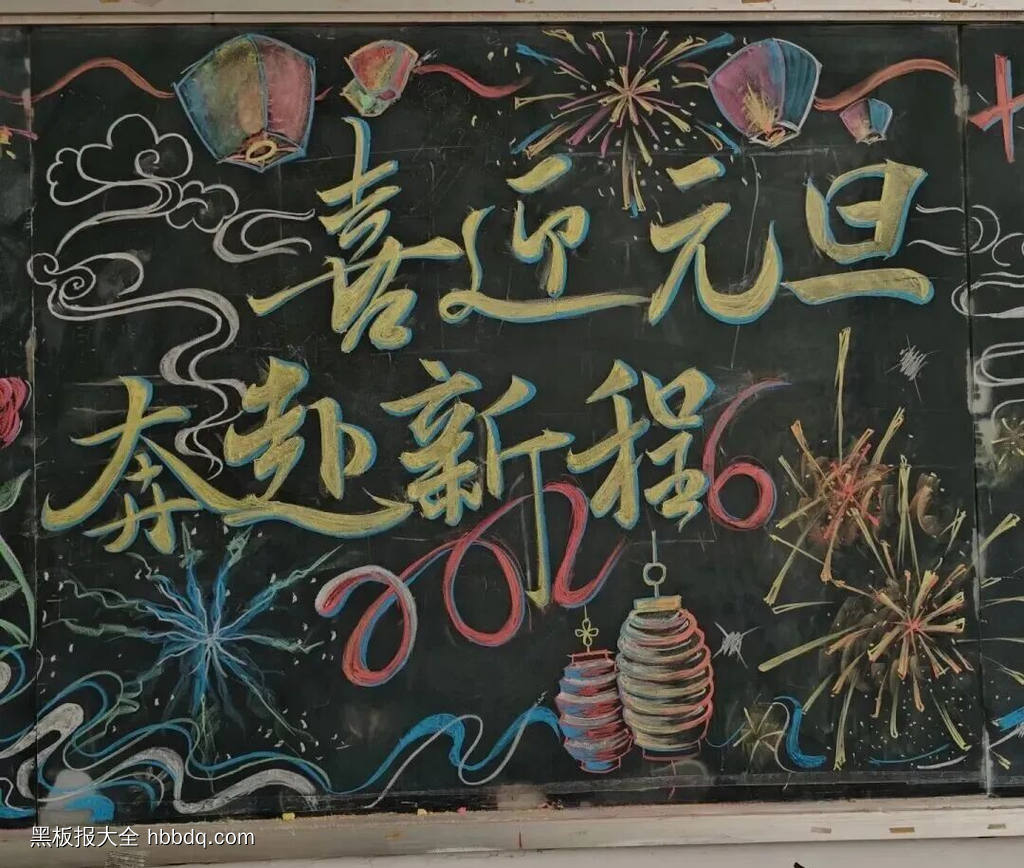 喜迎元旦
奔赴新程
2026
黑板报大全 hbbdq.com